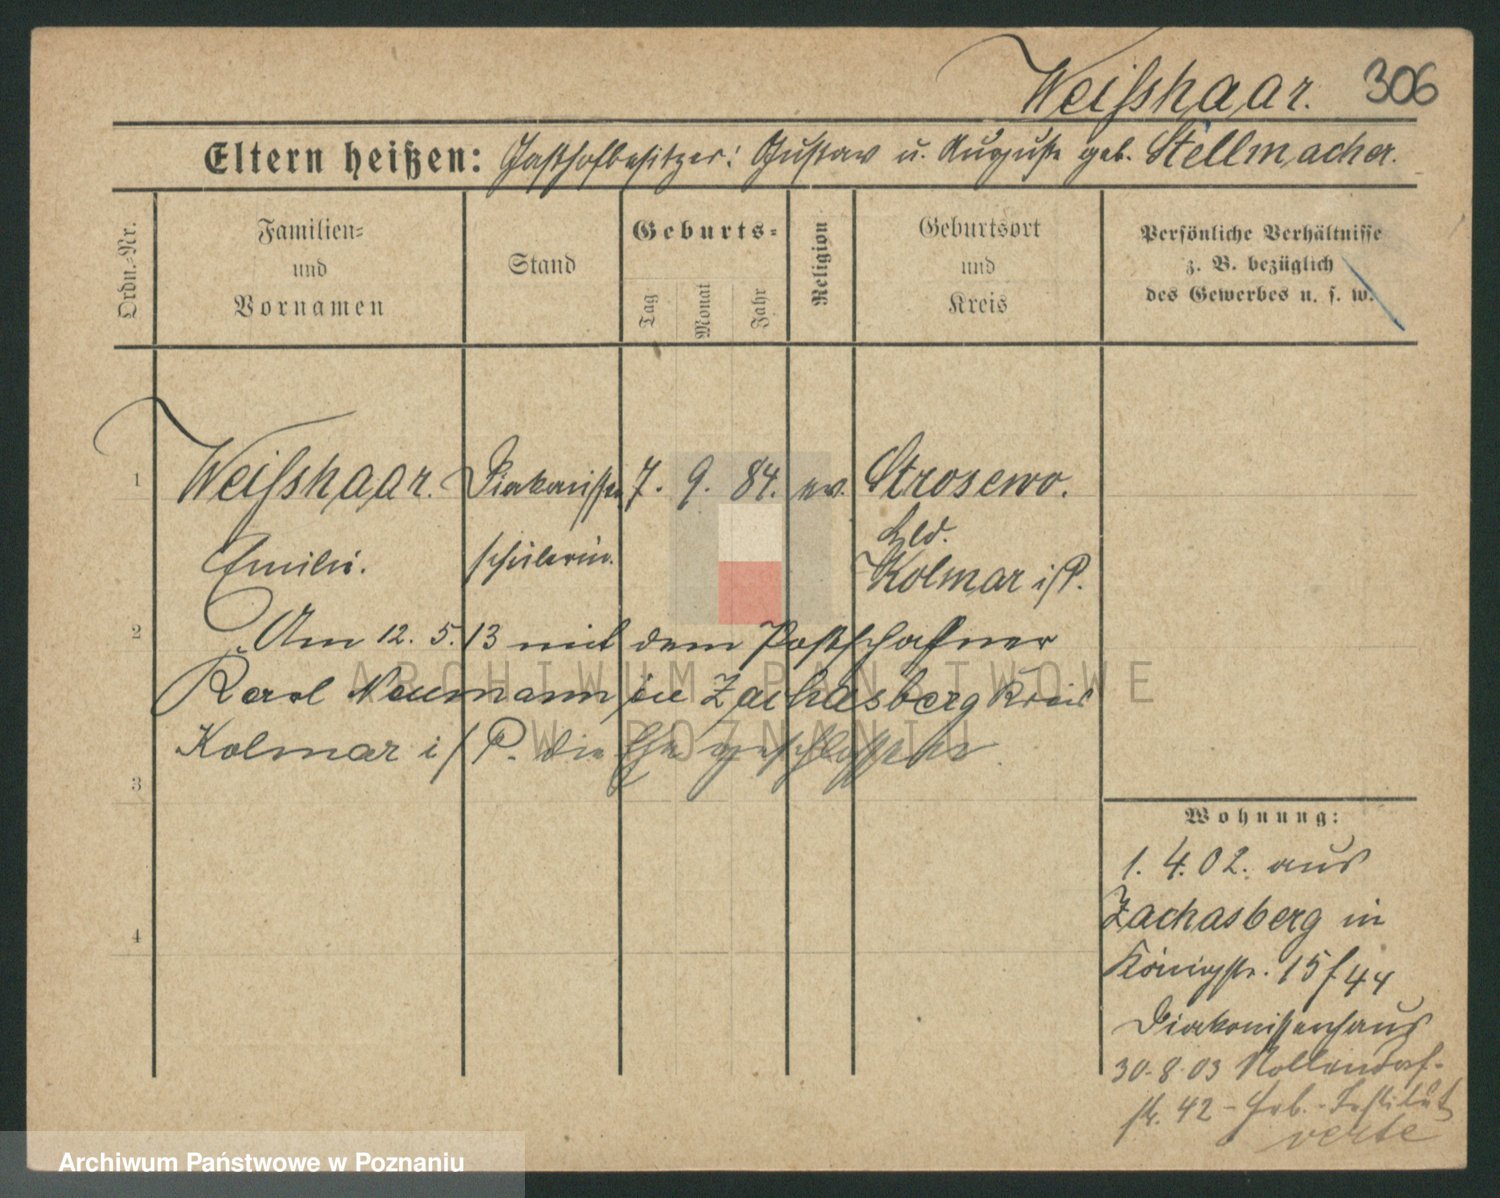 Weißhaar. 306
Eltern heißen: Gasthofbesitzer: Gustav u. Auguste geb. Stellmacher.
Ordn.-Nr.
Familien-
und
Vornamen
Stand
Geburts-
Tag
Monat
Jahr
Religion
Geburtsort
und
Kreis
Persönliche Verhältnisse
z. B. bezüglich
des Gewerbes u. s. w.
1 Weißhaar. Diakonissen 7. 9. 84. ev. Strosewo.
Hld.
Emilie. schülerin. Kolmar i/P.
2 Am 12. 5. 13 mit dem Postschaffner
Karl Neumann in Zachasberg Kreis
Kolmar i/P. die Ehe geschlossen.
3
4
Wohnung:
1. 4. 02. aus
Zachasberg in
Königstr. 15/44
Diakonissenhaus
30.8.03 Nollendorf-
str. 42 - Heb.-Institut
verte
ARCHIWUM PAŃSTWOWE
W POZNANIU
Archiwum Państwowe w Poznaniu